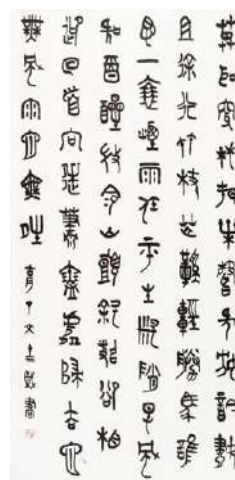 莫聽穿林打葉聲何妨吟嘯
且徐行竹杖芒鞋輕勝馬誰
怕一蓑煙雨任平生料峭春風
吹酒醒微冷山頭斜照卻相
迎回首向來蕭瑟處歸去也
無風雨也無晴